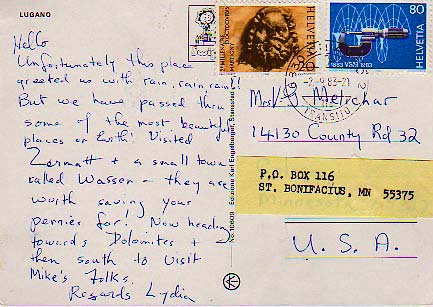 LUGANO
Hello
Unfortunately this place
greeted us with rain, rain, rain!!
But we have passed thru
some of the most beautiful
places on Earth! Visited
Zermatt + a small town
called Wassen - they are
worth saving your
pennies for! Now heading
towards Dolomites +
then south to visit
Mike's folks.
Regards Lydia
Edizione Karl Engelberger, Stansstad
No 10608
HELVETIA
80
HELVETIA
1883 VSM 1983
Metrchar
14130 County Rd 32
P.O. BOX 116
ST. BONIFACIUS, MN 55375
U.S.A.